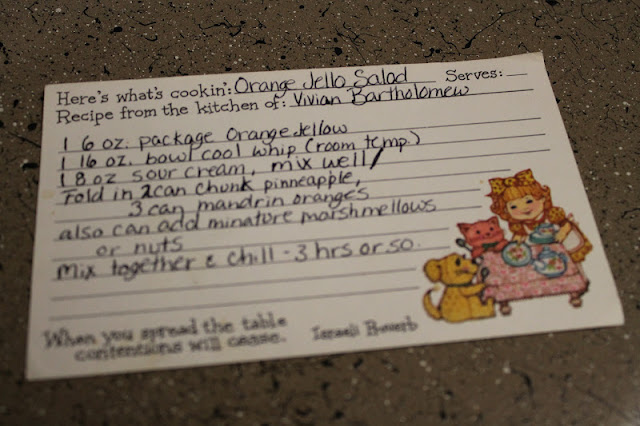 Here's what's cookin': Orange Jello Salad Serves:
Recipe from the kitchen of: Vivian Bartholomew
1 6 oz. package Orange Jellow
1 16 oz. bowl cool whip (room temp.)
1 8 oz sour cream, mix well/
Fold in 2 can chunk pinneapple,
3 can mandrin oranges
also can add minature marshmellows
or nuts
mix together & chill - 3 hrs or so.
When you spread the table
contentions will cease. Israeli Proverb